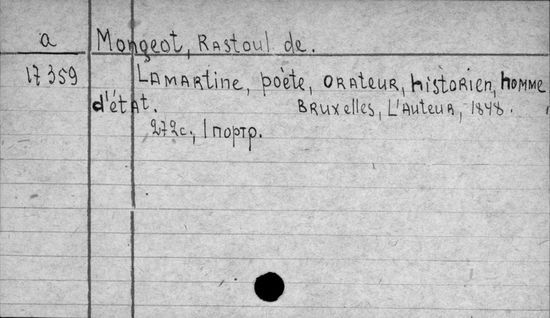 a Mongeot, Rastoul de.
17359 Lamartine, poète, orateur, historien, homme
d'état. Bruxelles, L'Auteur, 1848.
272с., 1 портр.